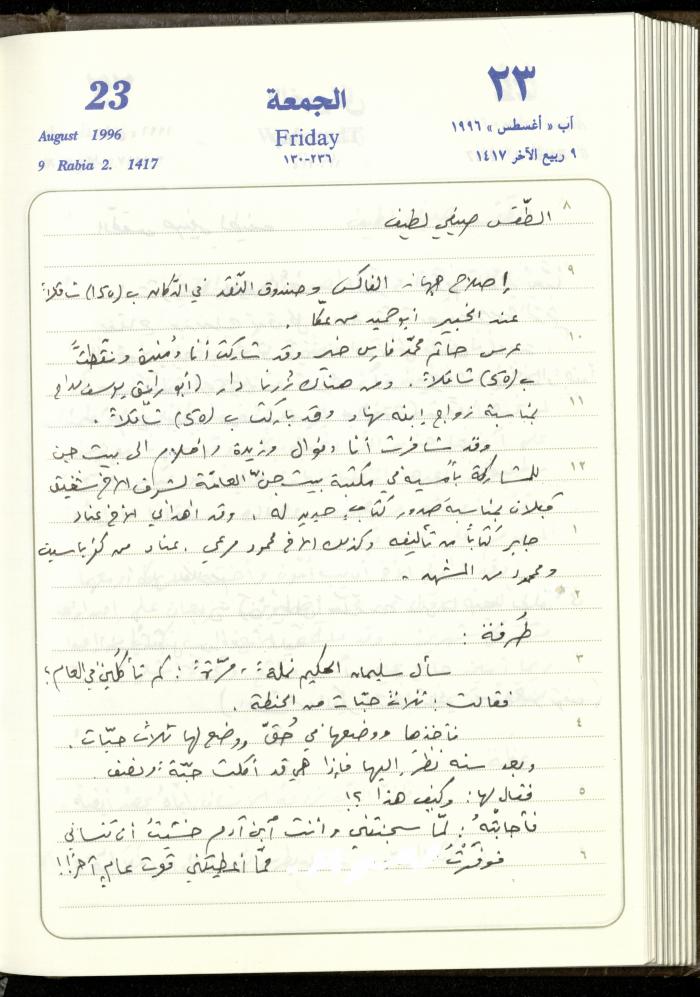 23
August 1996
9 Rabia 2. 1417
الجمعة
Friday
٢٣٦-١٣٠
٢٣
آب « أغسطس » ١٩٩٦
٩ ربيع الآخر ١٤١٧
٨
الطّقس صيفي لطيف
٩
إصلاح جهاز الفاكس وصندوق النّقد في الدّكان ب (150) شاقلاً
عند الخبير أبو حميد من عكّا .
١٠
عرس حاتم محمّد فارس خير وقد شاركت أنا ومنيرة ونقّطتُّ
ب (50) شاقلاً . ومن هناك زُرنا دار (أبو رايق يوسف مداح
١١
بمناسبة زواج إبنه نهاد وقد باركتُ ب (50) شاقلاً .
وقد سافرت أنا ونوال وزبدة وأحلام الى بيت جن
١٢
للمشاركة بأمسية في مكتبة بيت جنّ العامّة لشرف الأخ شفيق
قبلان بمناسبة صدور كتابٍ جديد له . وقد اهداني الأخ عناد
١
جابر كتاباً من تأليفه وكذلك الأخ محمود مرعي . عناد من كفرياسيف
ومحمود من المشهد .
٢
طُرفة :
٣
سأل سليمان الحكيم نملةً مرّةً : كم تأكلين في العام ؟
فقالت : ثلاث حبّات من الحنطة .
٤
فأخذها ووضعها في حُقّ ووضع لها ثلاث حبّات .
وبعد سنه نظرَ إليها فإذا هي قد أكلت حبّة ونصف .
٥
فقال لها : وكيف هذا ؟!
فأجابتْهُ : لمّا سجنتني وأنت ابن آدم خشيتُ أن تنساني
٦
فوفّرْتُ ممّا أعطيتني قوت عامٍ آخر !!